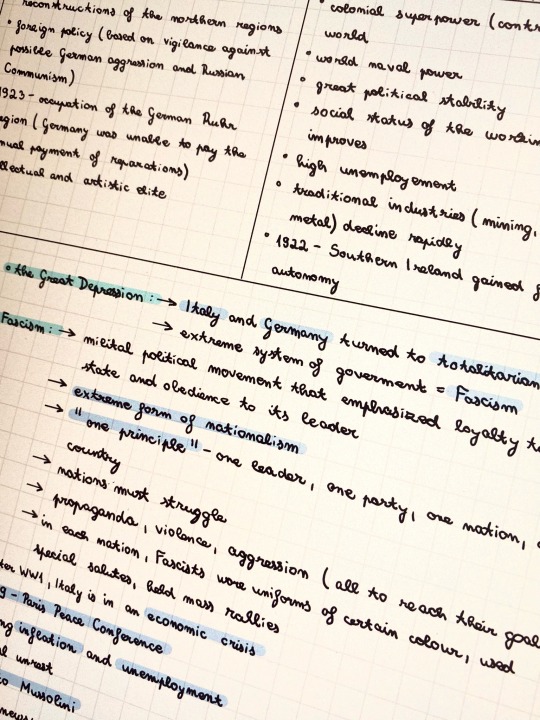 reconstructions of the northern regions
• foreign policy (based on vigilance against
possible German aggression and Russian
Communism)
1923 - occupation of the German Ruhr
region (Germany was unable to pay the
annual payment of reparations)
intellectual and artistic elite
• colonial superpower (contr
world
• world naval power
• great political stability
• social status of the workin
improves
• high unemployement
• traditional industries (mining,
metal) decline rapidly
• 1922 - Southern Ireland gained
autonomy
• the Great Depression: → Italy and Germany turned to totalitarian
→ extreme system of goverment = Fascism
Fascism: → milital political movement that emphasized loyalty to
state and obedience to its leader
→ extreme form of nationalism
→ "one principle" - one leader, one party, one nation,
country
→ nations must struggle
→ propaganda, violence, aggression (all to reach their goal
→ in each nation, Fascists wore uniforms of certain colour, used
special salutes, held mass rallies
WW1, Italy is in an economic crisis
- Paris Peace Conference
inflation and unemployment
unrest
to Mussolini